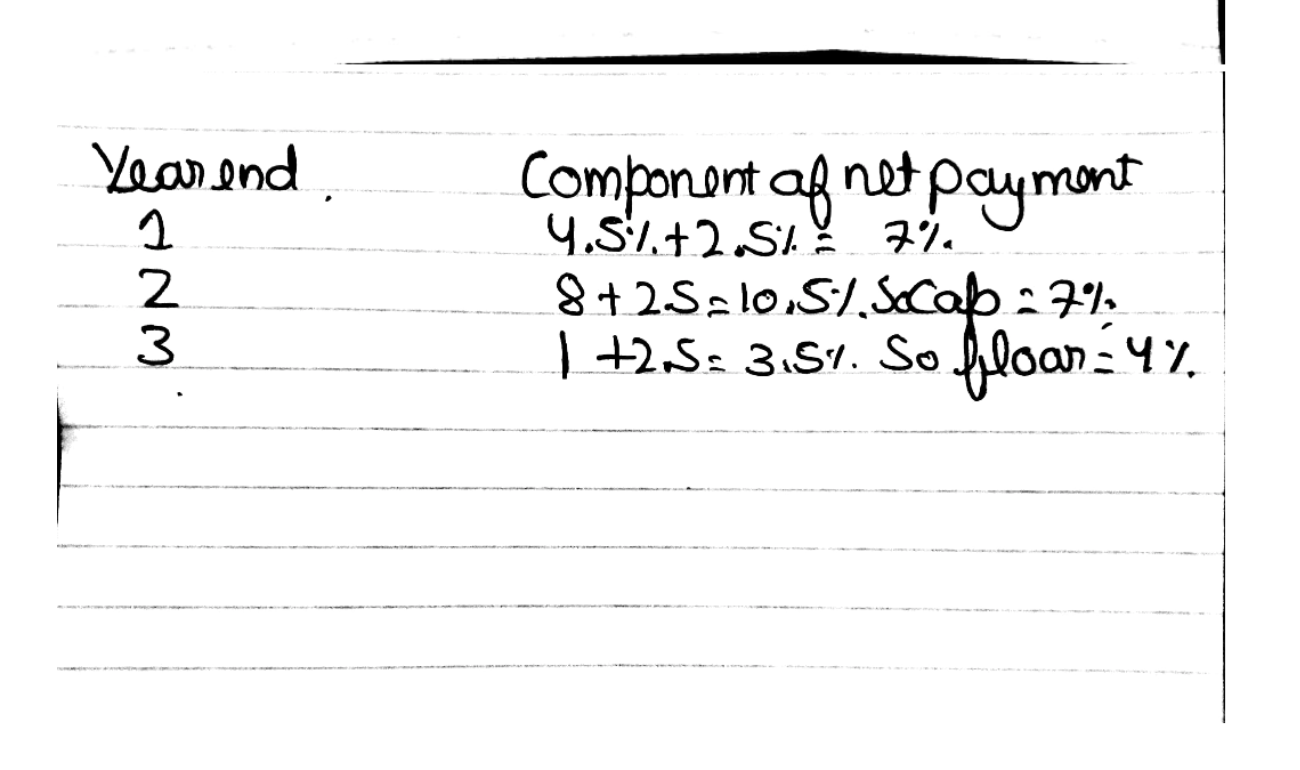 Year end. Component of net payment
1 4.5%+2.5% = 7%.
2 8+2.5=10.5%. So Cap = 7%.
3 1+2.5= 3.5%. So floor = 4%.